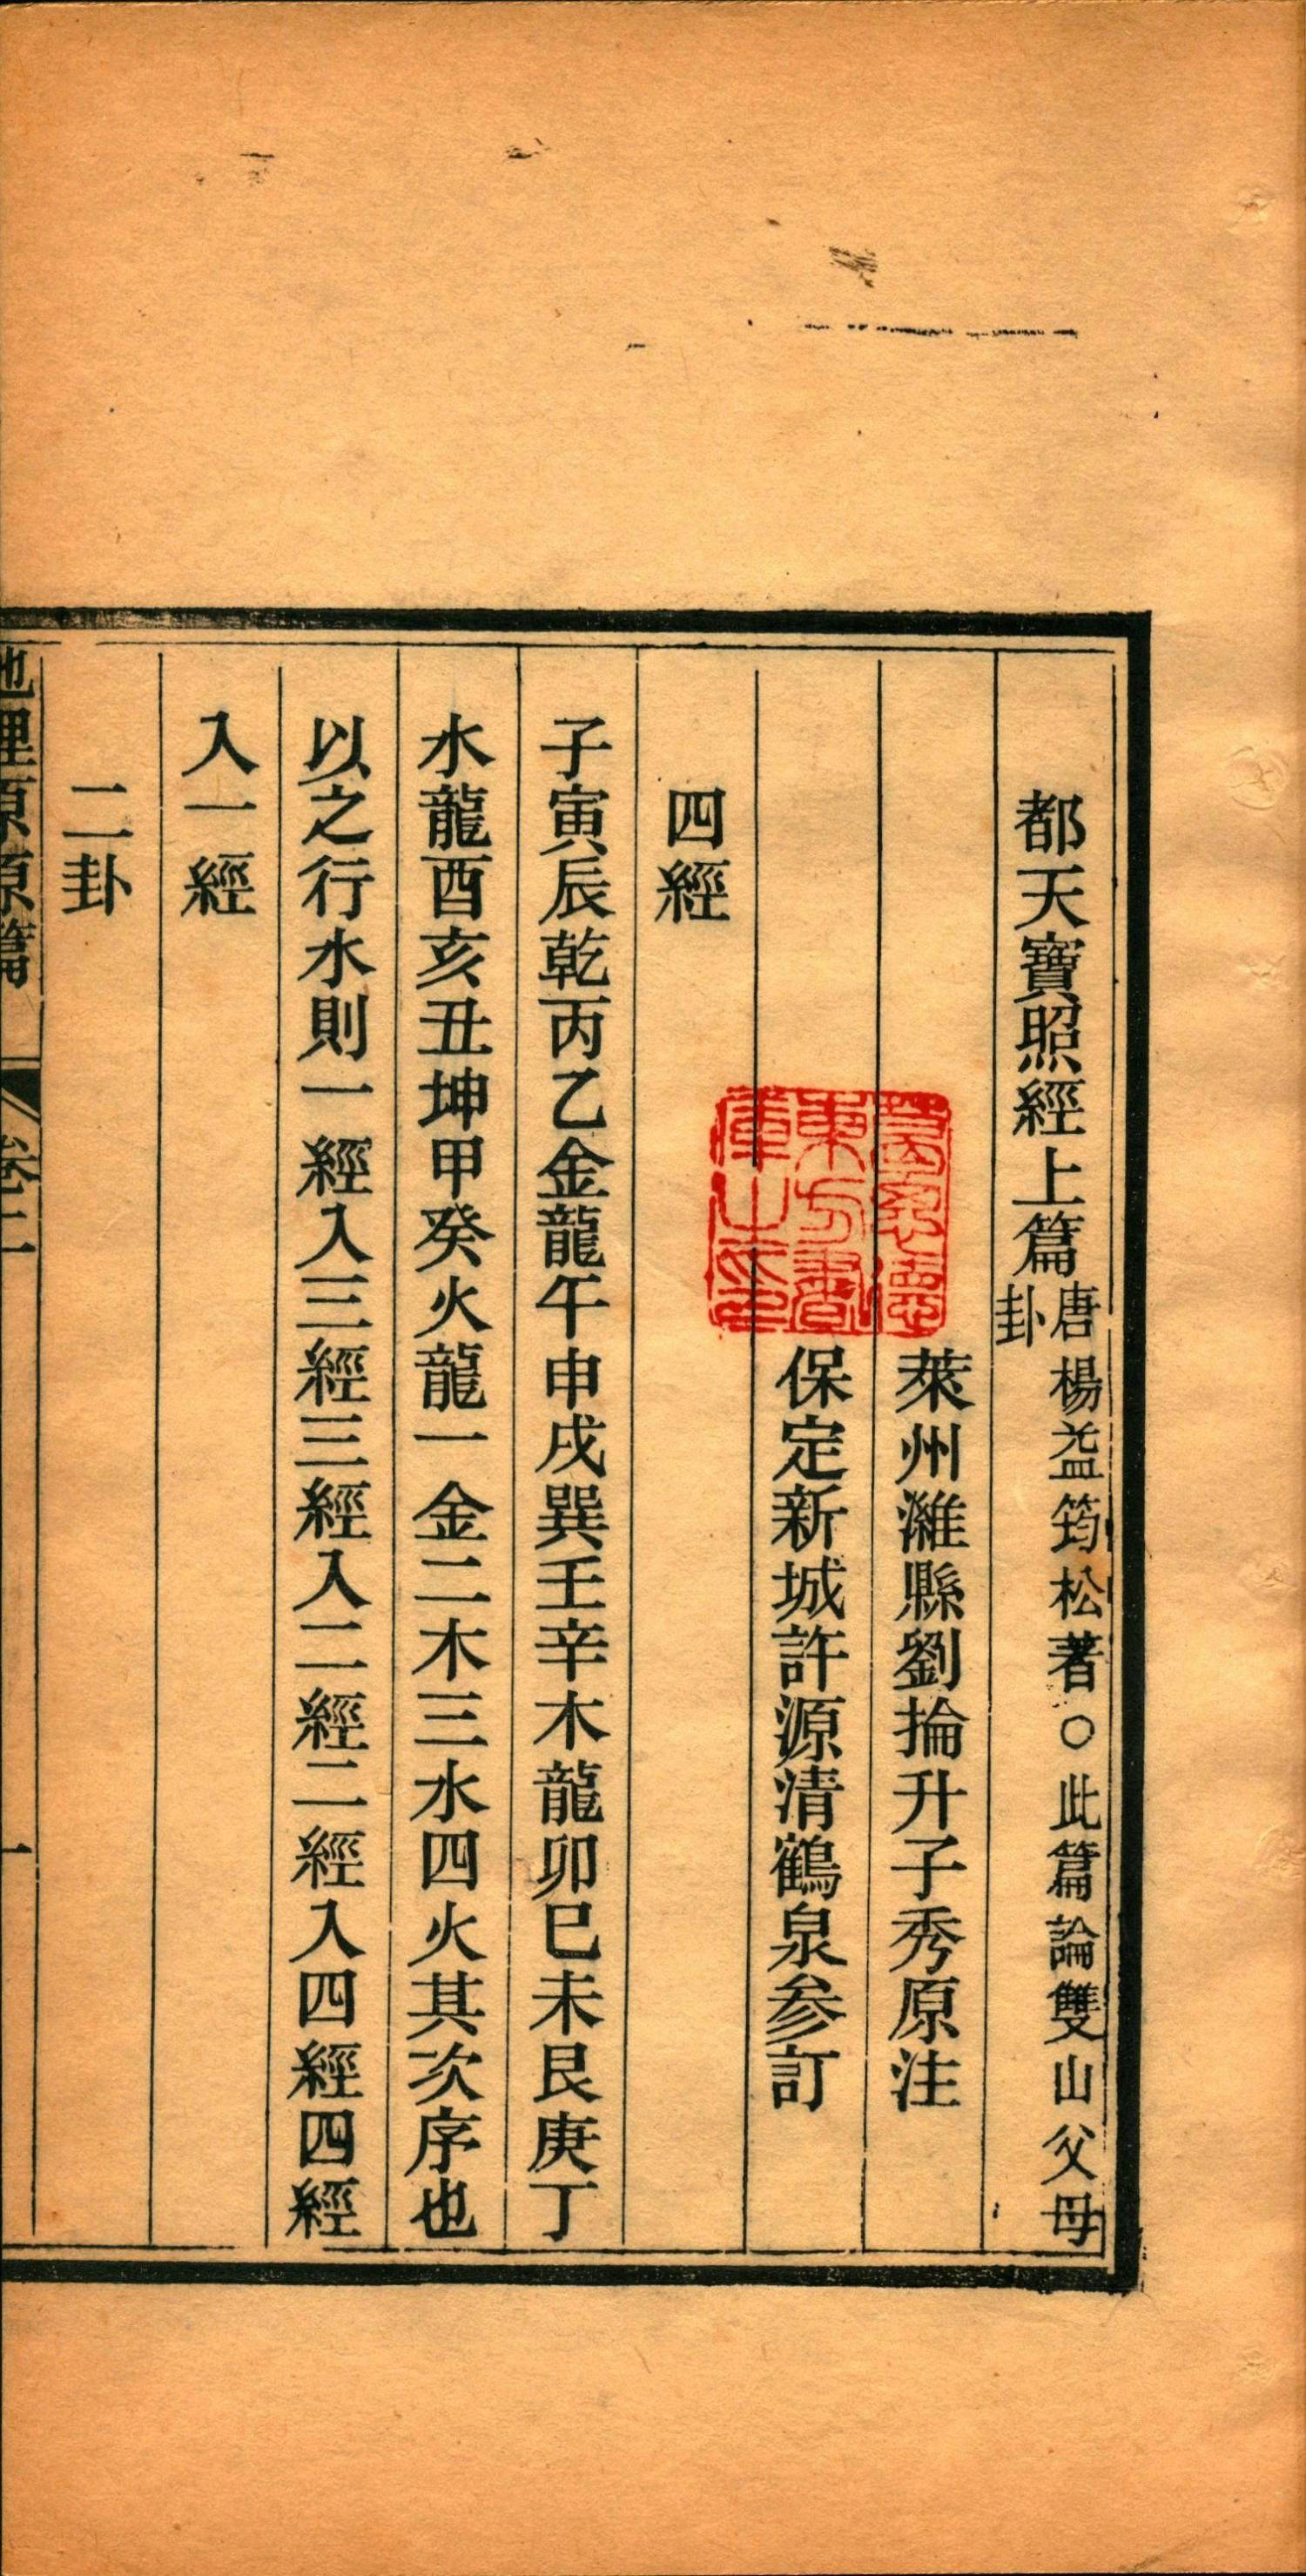 都天寶照經上篇唐楊益筠松著○此篇論雙山父母卦
萊州濰縣劉掄升子秀原注
保定新城許源清鶴泉参訂
四經
子寅辰乾丙乙金龍午申戌巽壬辛木龍卯巳未艮庚丁
水龍酉亥丑坤甲癸火龍一金二木三水四火其次序也
以之行水則一經入三經三經入二經二經入四經四經
入一經
二卦
地理原原篇
卷二
一